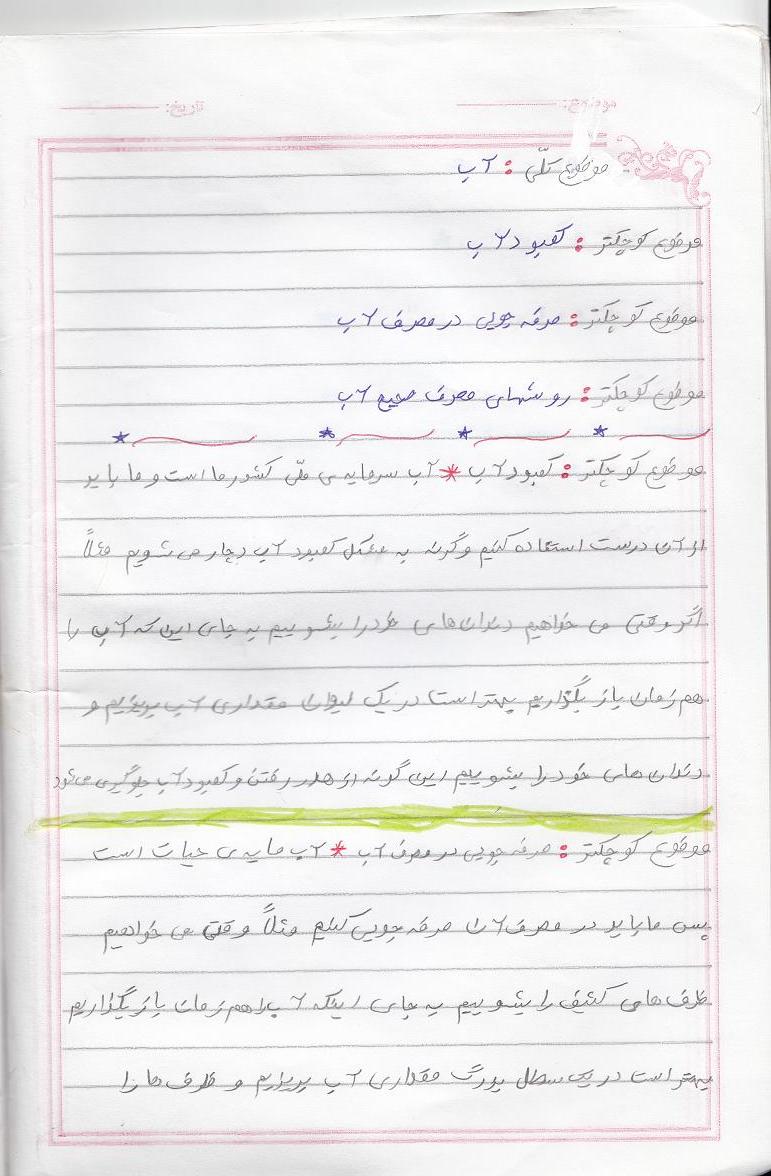 موضوع: تاریخ:
موضوع کلّی : آب
موضوع کوچکتر : کمبود آب
موضوع کوچکتر : صرفه جویی در مصرف آب
موضوع کوچکتر : روشهای مصرف صحیح آب
موضوع کوچکتر : کمبود آب * آب سرمایه ی ملّی کشور ما است و ما باید
از آن درست استفاده کنیم وگرنه به مشکل کمبود آب دچار می شویم مثلاً
اگر وقتی می خواهیم دندان های خود را بشوییم به جای این که آب را
هم زمان باز بگزاریم بهتر است در یک لیوان مقداری آب بریزیم و
دندان های خود را بشوییم این گونه از هدر رفتن و کمبود آب جلوگیری می شود
موضوع کوچکتر : صرفه جویی در مصرف آب * آب مایه ی حیات است
پس ما باید در مصرف آن صرفه جویی کنیم مثلاً وقتی می خواهیم
ظرف های کثیف را بشوییم به جای اینکه آب را هم زمان باز بگذاریم
بهتر است در یک سطل بزرگ مقداری آب بریزیم و ظرف ها را